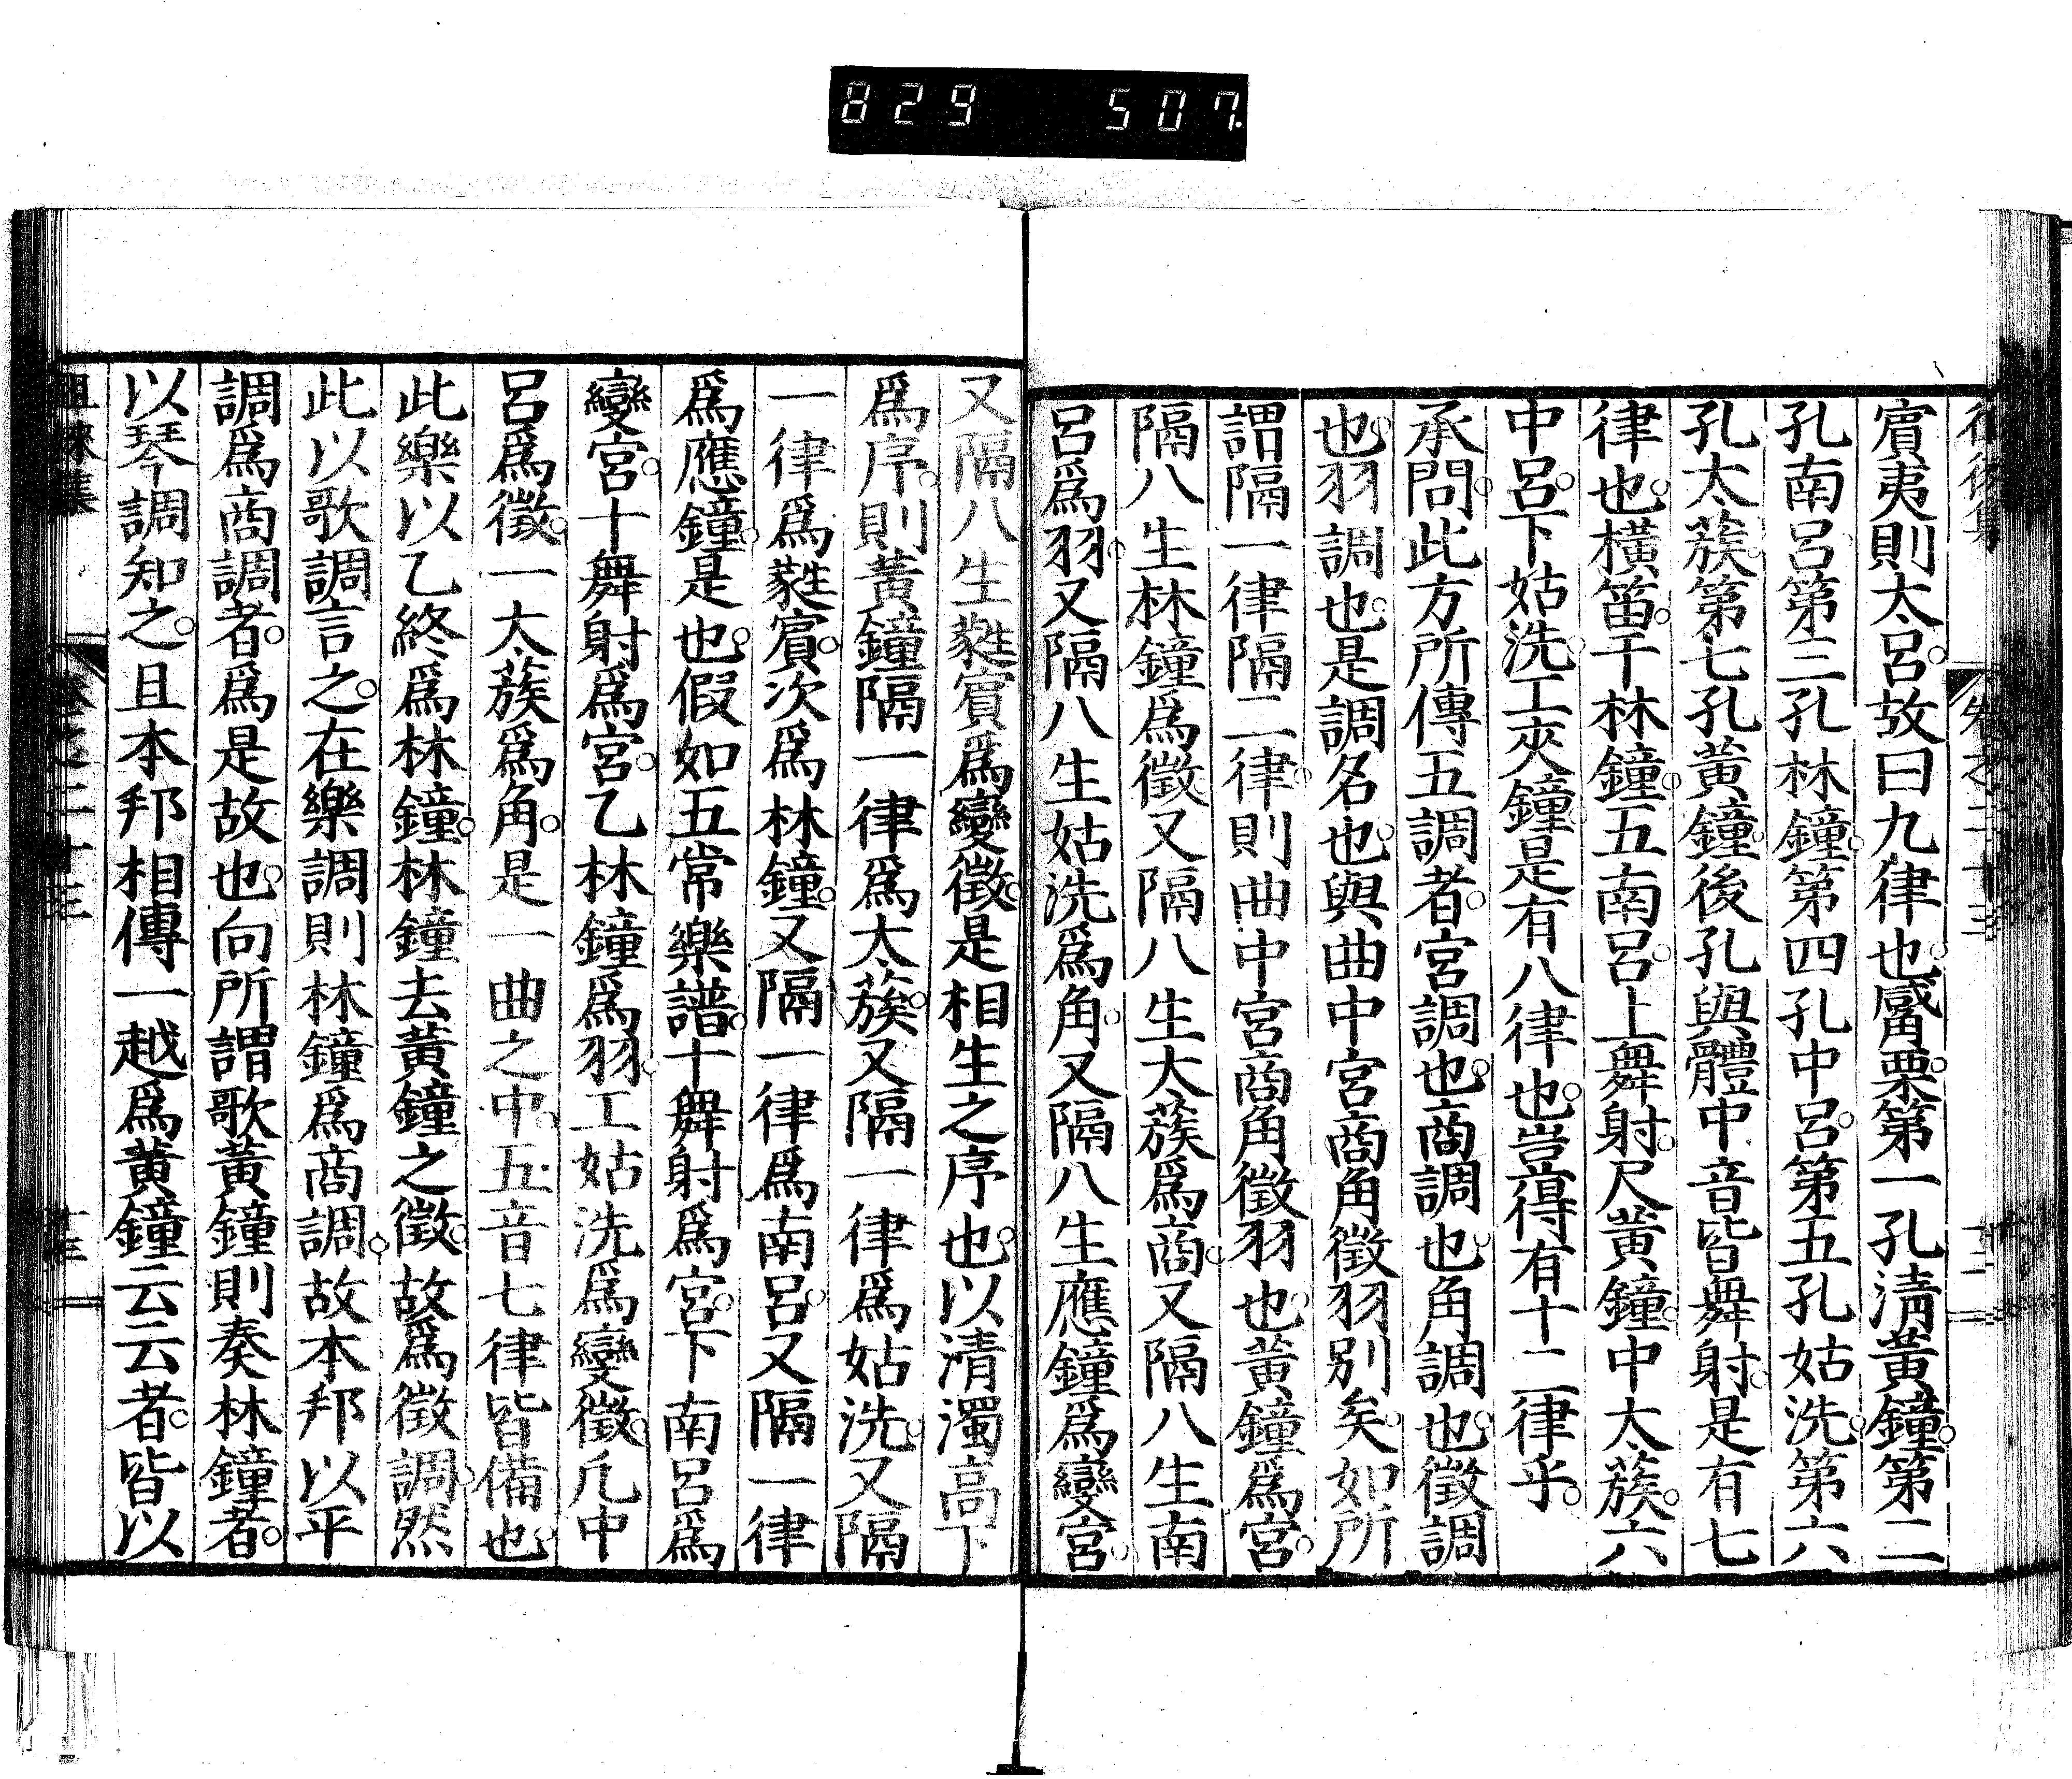 829 507
賓夷則太呂故曰九律也觱栗第一孔淸黃鐘第二
孔南呂第三孔林鐘第四孔中呂第五孔姑洗第六
孔太蔟第七孔黃鐘後孔與體中音皆舞射是有七
律也橫笛干林鐘五南呂上舞射尺黃鐘中太蔟六
中呂下姑洗工夾鐘是有八律也豈得有十二律乎
承問此方所傳五調者宮調也商調也角調也徵調
也羽調也是調名也與曲中宮商角徵羽別矣如所
謂隔一律隔二律則曲中宮商角徵羽也黃鐘爲宮
隔八生林鐘爲徵又隔八生太蔟爲商又隔八生南
呂爲羽又隔八生姑洗爲角又隔八生應鐘爲變宮
又隔八生蕤賓爲變徵是相生之序也以淸濁高下
爲序則黃鐘隔一律爲太蔟又隔一律爲姑洗又隔
一律爲蕤賓次爲林鐘又隔一律爲南呂又隔一律
爲應鐘是也假如五常樂譜十舞射爲宮下南呂爲
變宮十舞射爲宮乙林鐘爲羽工姑洗爲變徵凢中
呂爲徵一太蔟爲角是一曲之中五音七律皆備也
此樂以乙終爲林鐘林鐘去黃鐘之徵故爲徵調然
此以歌調言之在樂調則林鐘爲商調故本邦以平
調爲商調者爲是故也向所謂歌黃鐘則奏林鐘者
以琴調知之且本邦相傳一越爲黃鐘云云者皆以
徂徠集 卷之二十三 十三